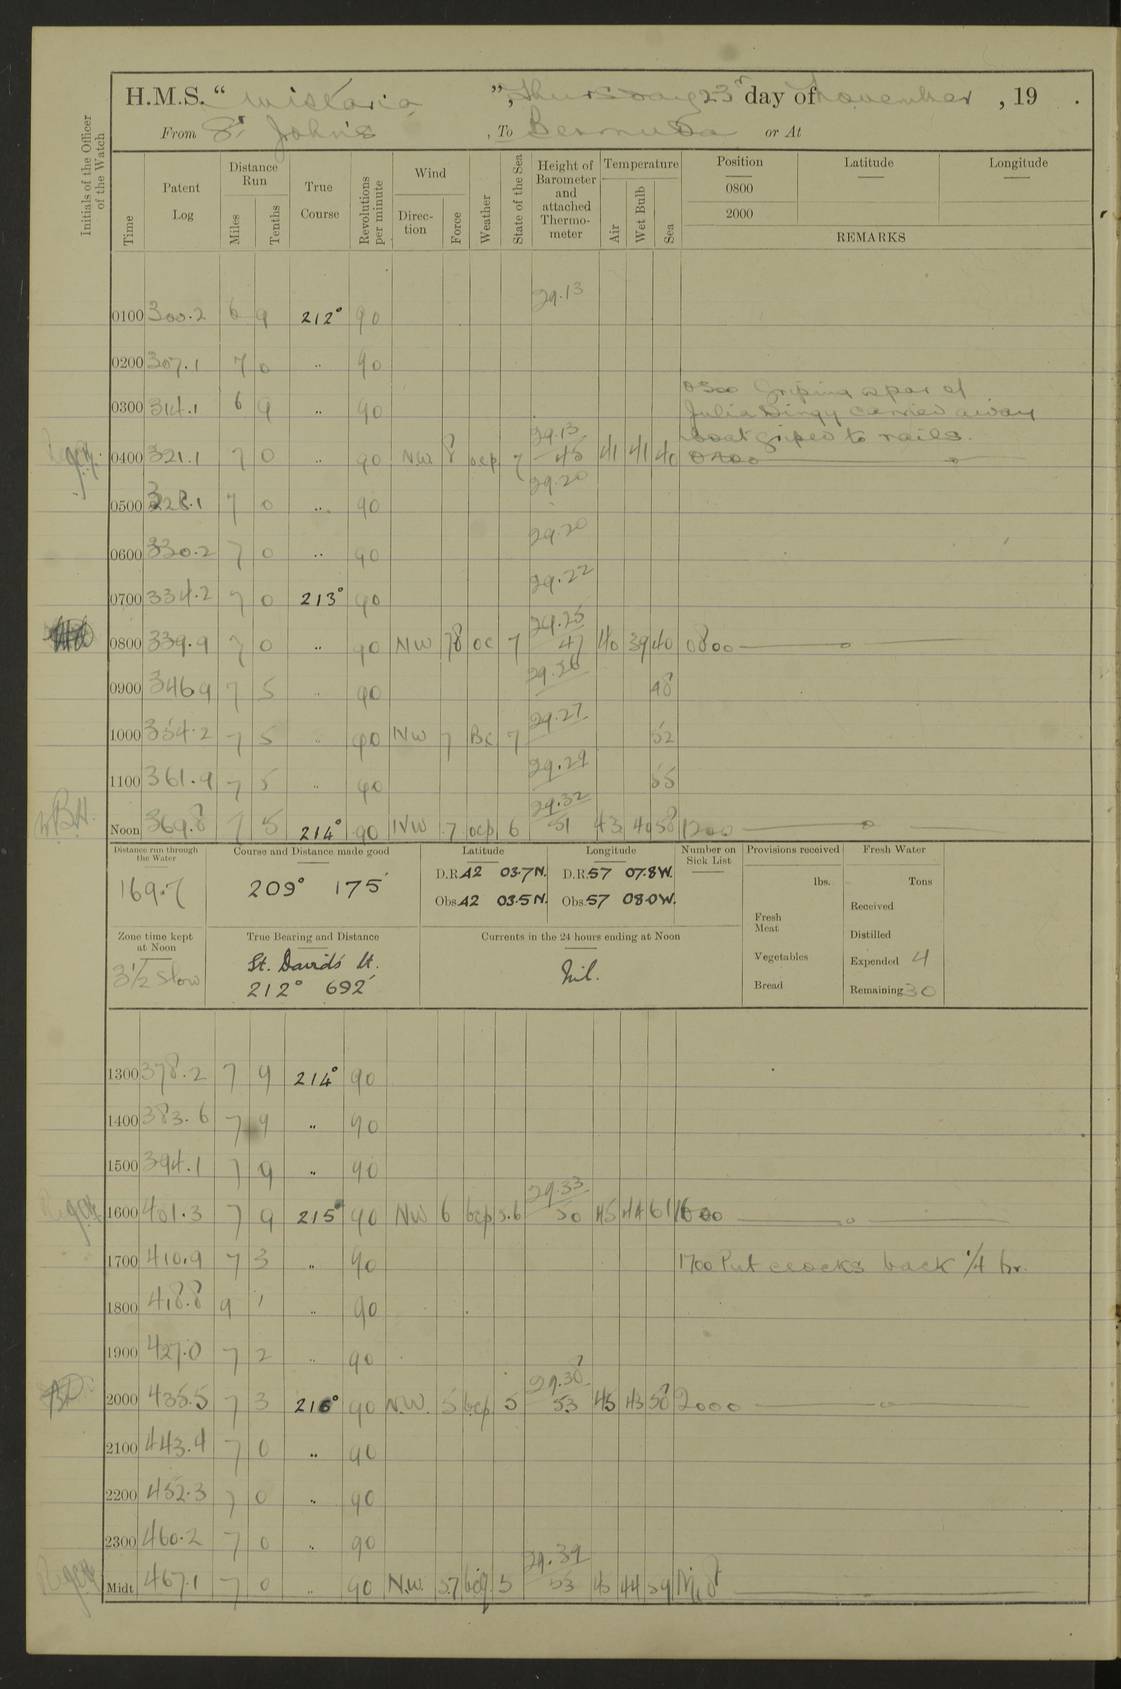 H.M.S. “ Wistaria ”, Thursday 23rd day of November , 19 .
From St John's , To Bermuda or At
Initials of the Officer of the Watch
Time
Patent Log
Distance Run
Miles
Tenths
True Course
Revolutions per minute
Wind
Direction
Force
Weather
State of the Sea
Height of Barometer and attached Thermometer
Temperature
Air
Wet Bulb
Sea
Position Latitude Longitude
0800
2000
REMARKS
29.13
0100 300.2 6 9 212° 90
0200 307.1 7 0 " 90
0300 314.1 6 9 " 90
0300 Griping spar of
Julia Dingy carried away
boat griped to rails.
29.13
0400 321.1 7 0 " 90 NW 8 ocp 7 45 41 41 40 0400
29.20
0500 328.1 7 0 " 90
29.20
0600 330.2 7 0 " 90
29.22
0700 334.2 7 0 213° 90
29.25
0800 339.9 7 0 " 90 NW 78 oc 7 47 40 39 40 0800
29.26
0900 346.9 7 5 " 90 48
29.27
1000 354.2 7 5 " 90 NW 7 Bc 7 52
29.29
1100 361.9 7 5 " 90 55
29.32
Noon 369.8 7 5 214° 90 NW 7 ocp 6 51 43 40 58 1200
Distance run through the Water
169.7
Course and Distance made good
209° 175'
Latitude Longitude
D.R. 42 03.7N. D.R. 57 07.8W.
Obs. 42 03.5N. Obs. 57 08.0W.
Number on Sick List
Provisions received
lbs.
Fresh Meat
Vegetables
Bread
Fresh Water
Tons
Received
Distilled
Expended 4
Remaining 30
Zone time kept at Noon
3½ Slow
True Bearing and Distance
St. Davids Lt.
212° 692'
Currents in the 24 hours ending at Noon
Nil.
1300 378.2 7 9 214° 90
1400 383.6 7 9 " 90
1500 394.1 7 9 " 90
29.33
1600 401.3 7 9 215° 90 NW 6 bcp 5.6 50 45 44 61 1600
1700 410.9 7 3 " 90 1700 Put clocks back ¼ hr.
1800 418.8 9 1 " 90
1900 427.0 7 2 " 90
29.38
2000 435.5 7 3 216° 90 N.W. 5 bcp 5 53 45 43 58 2000
2100 443.4 7 0 " 90
2200 452.3 7 0 " 90
2300 460.2 7 0 " 90
29.39
Midt. 467.1 7 0 " 90 N.W. 5.7 bcq 5 53 45 44 59 Mid